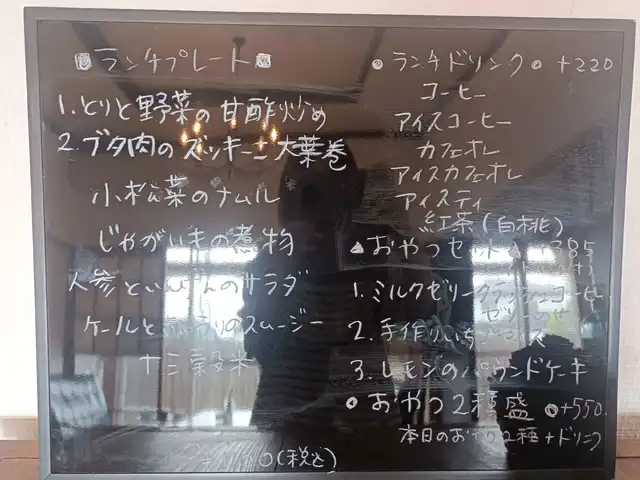 ランチプレート
1.とりと野菜の甘酢炒め
2.ブタ肉のズッキーニ大葉巻
小松菜のナムル
じゃがいもの煮物
人参といんげんのサラダ
ケールと のスムージー
十三穀米
(税込)
ランチドリンク +220
コーヒー
アイスコーヒー
カフェオレ
アイスカフェオレ
アイスティ
紅茶(白桃)
▲おやつセット 385
1.ミルクゼリークラッシュコーヒー
ゼリー
2.手作りいちご
3.レモンのパウンドケーキ
おやつ2種盛 +550
本日のおやつ2種+ドリンク